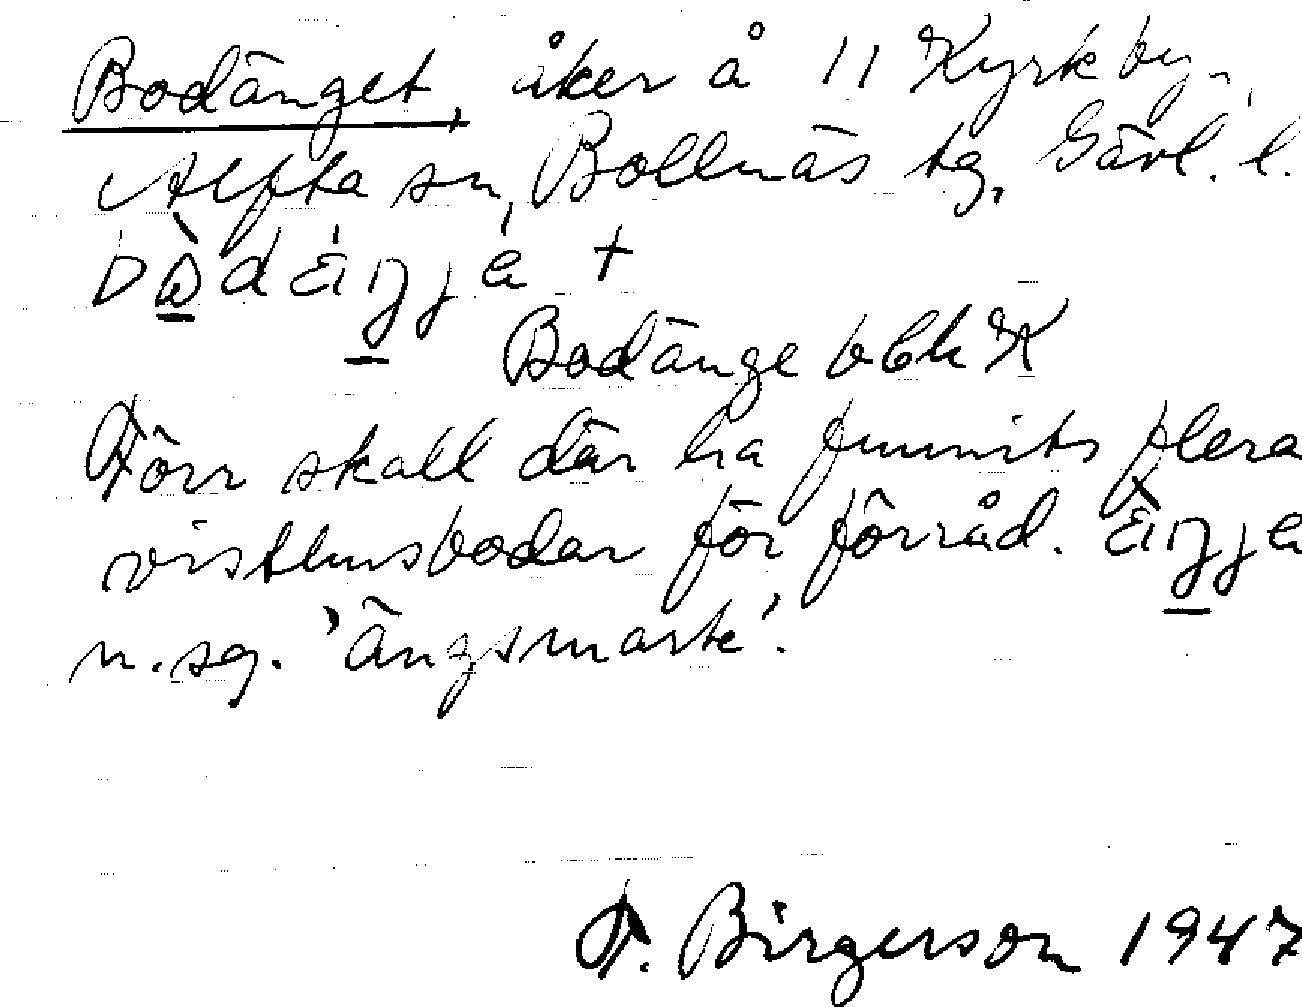 Bodänget, åker å 11 Kyrkby,
Alfta sn, Bollnäs tg, Gävl. l.
Bodänge blk K
Förr skall där ha funnits flera
visthusbodar för förråd.
n.sg. 'ängsmark'.
F. Birgerson 1947